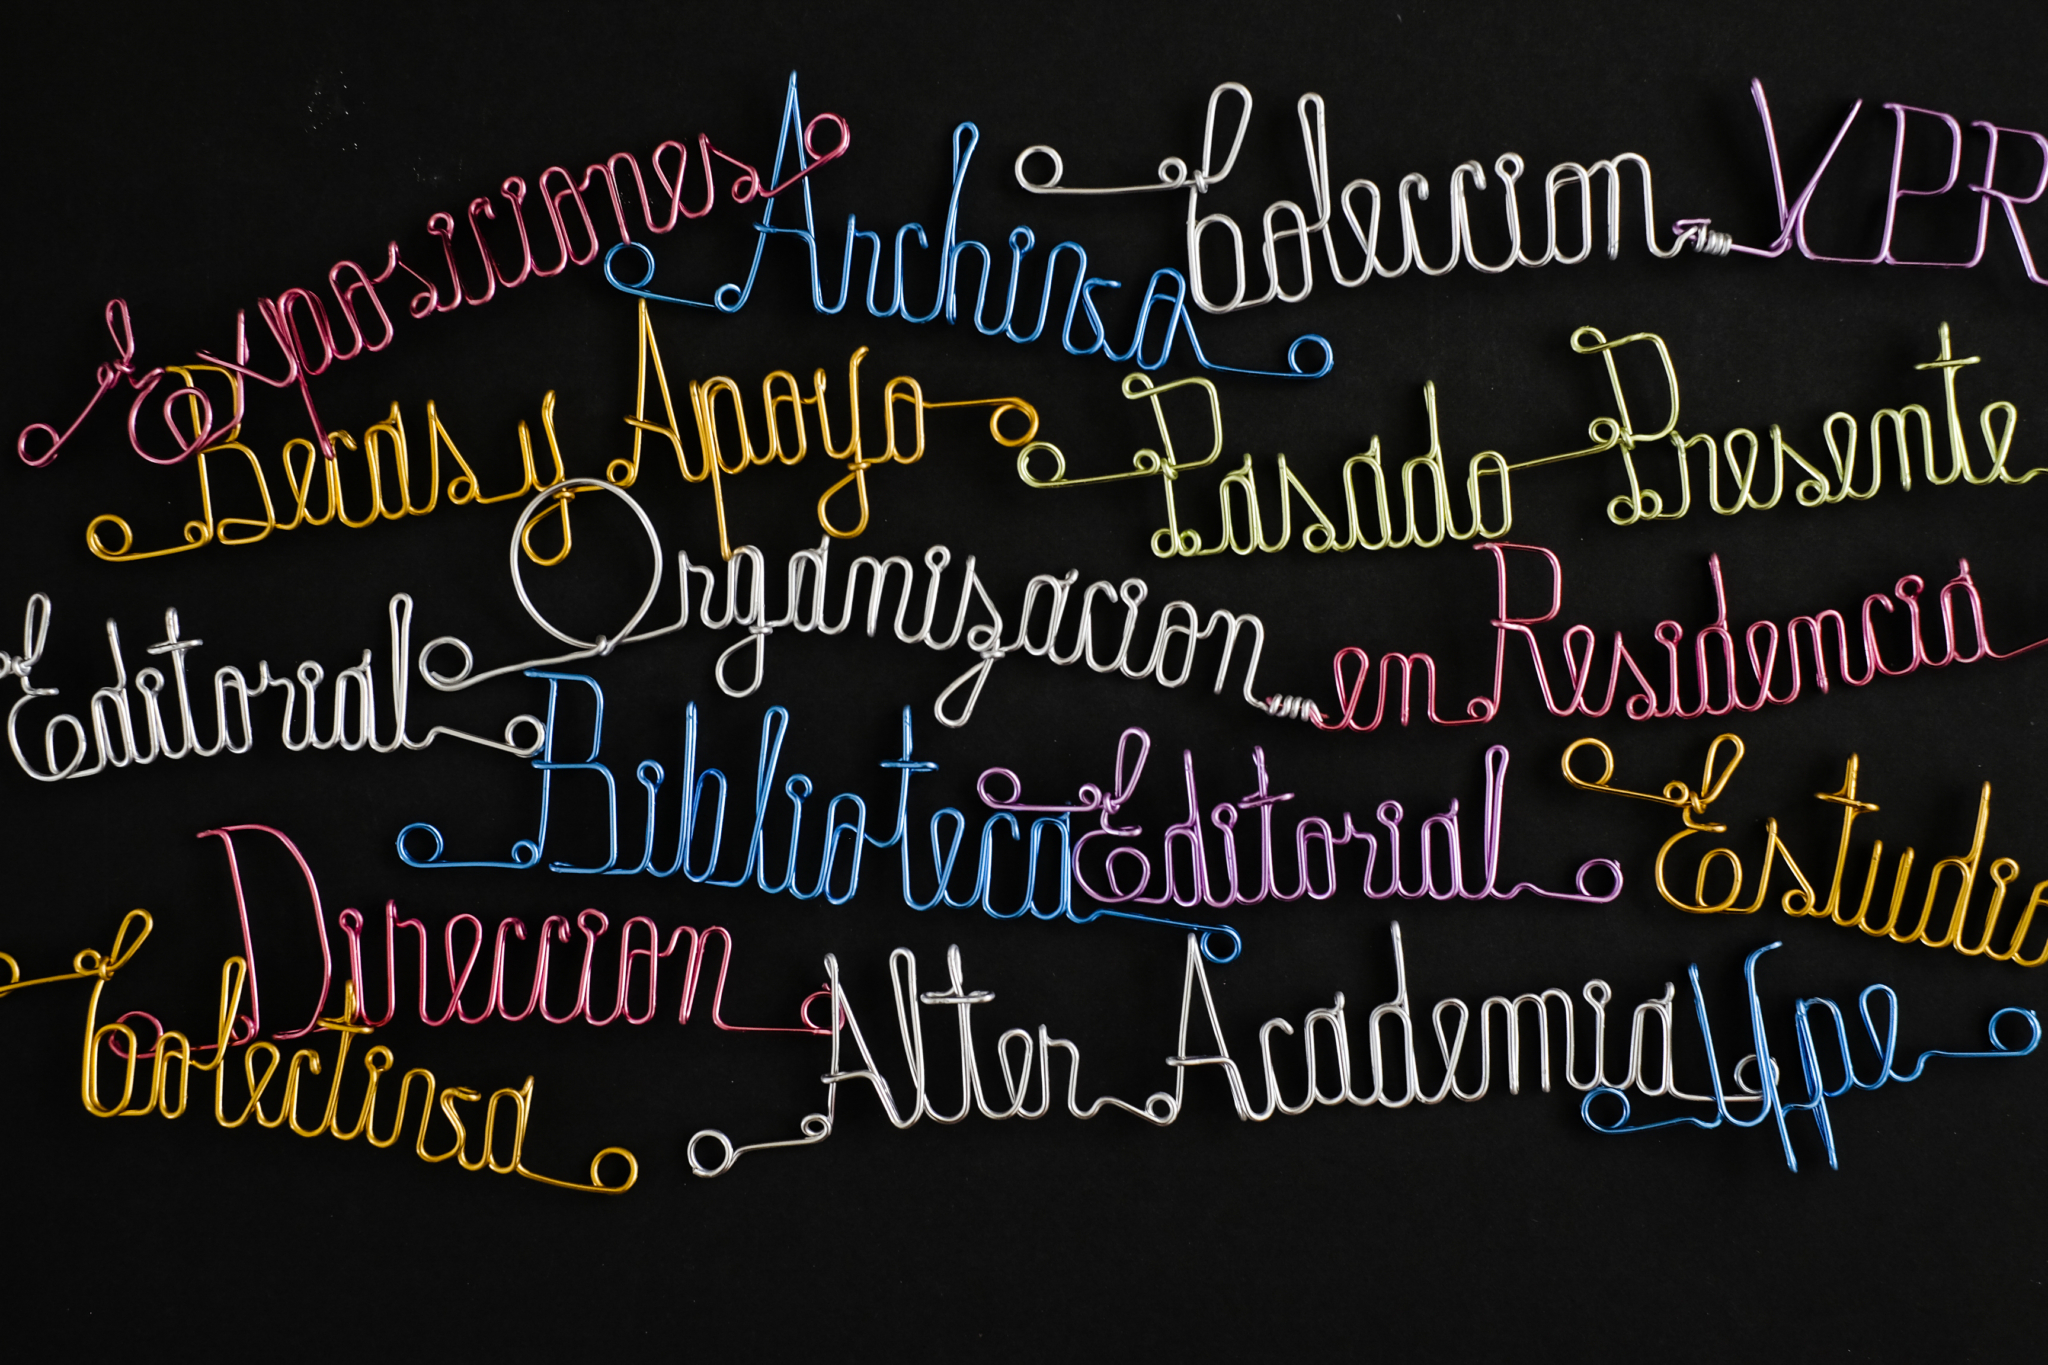 Exposiciones Archivo Coleccion VPR
Becas y Apoyo Pasado Presente
Editorial Organizacion en Residencia
Biblioteca Editorial Estudio
Direccion
Colectiva Alter Academia